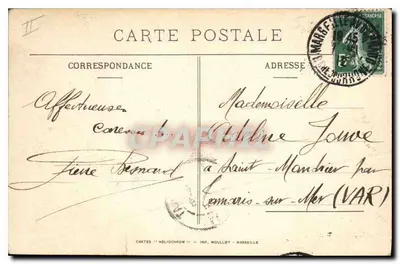 II
CARTE POSTALE
CORRESPONDANCE
ADRESSE
Affectueuses
Caresses
Pierre Besnard
Mademoiselle
Adeline Jouve
a Saint-Mandrier par
Tamaris-sur-Mer (VAR)
CARTES "HÉLIOCHROM" - IMP. MOULLOT - MARSEILLE